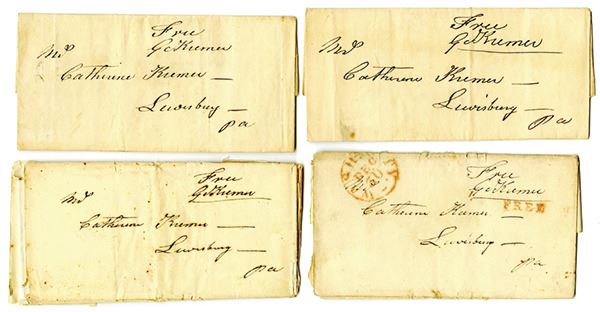 Free
Gc Kremer
Mrs
Catherine Kremer —
Lewisburg —
pa
Free
Gc Kremer
Mrs
Catherine Kremer —
Lewisburg —
pa
Free
Gc Kremer
Mrs
Catherine Kremer —
Lewisburg —
pa
Free
Gc Kremer
FREE
Catherine Kremer —
Lewisburg —
pa